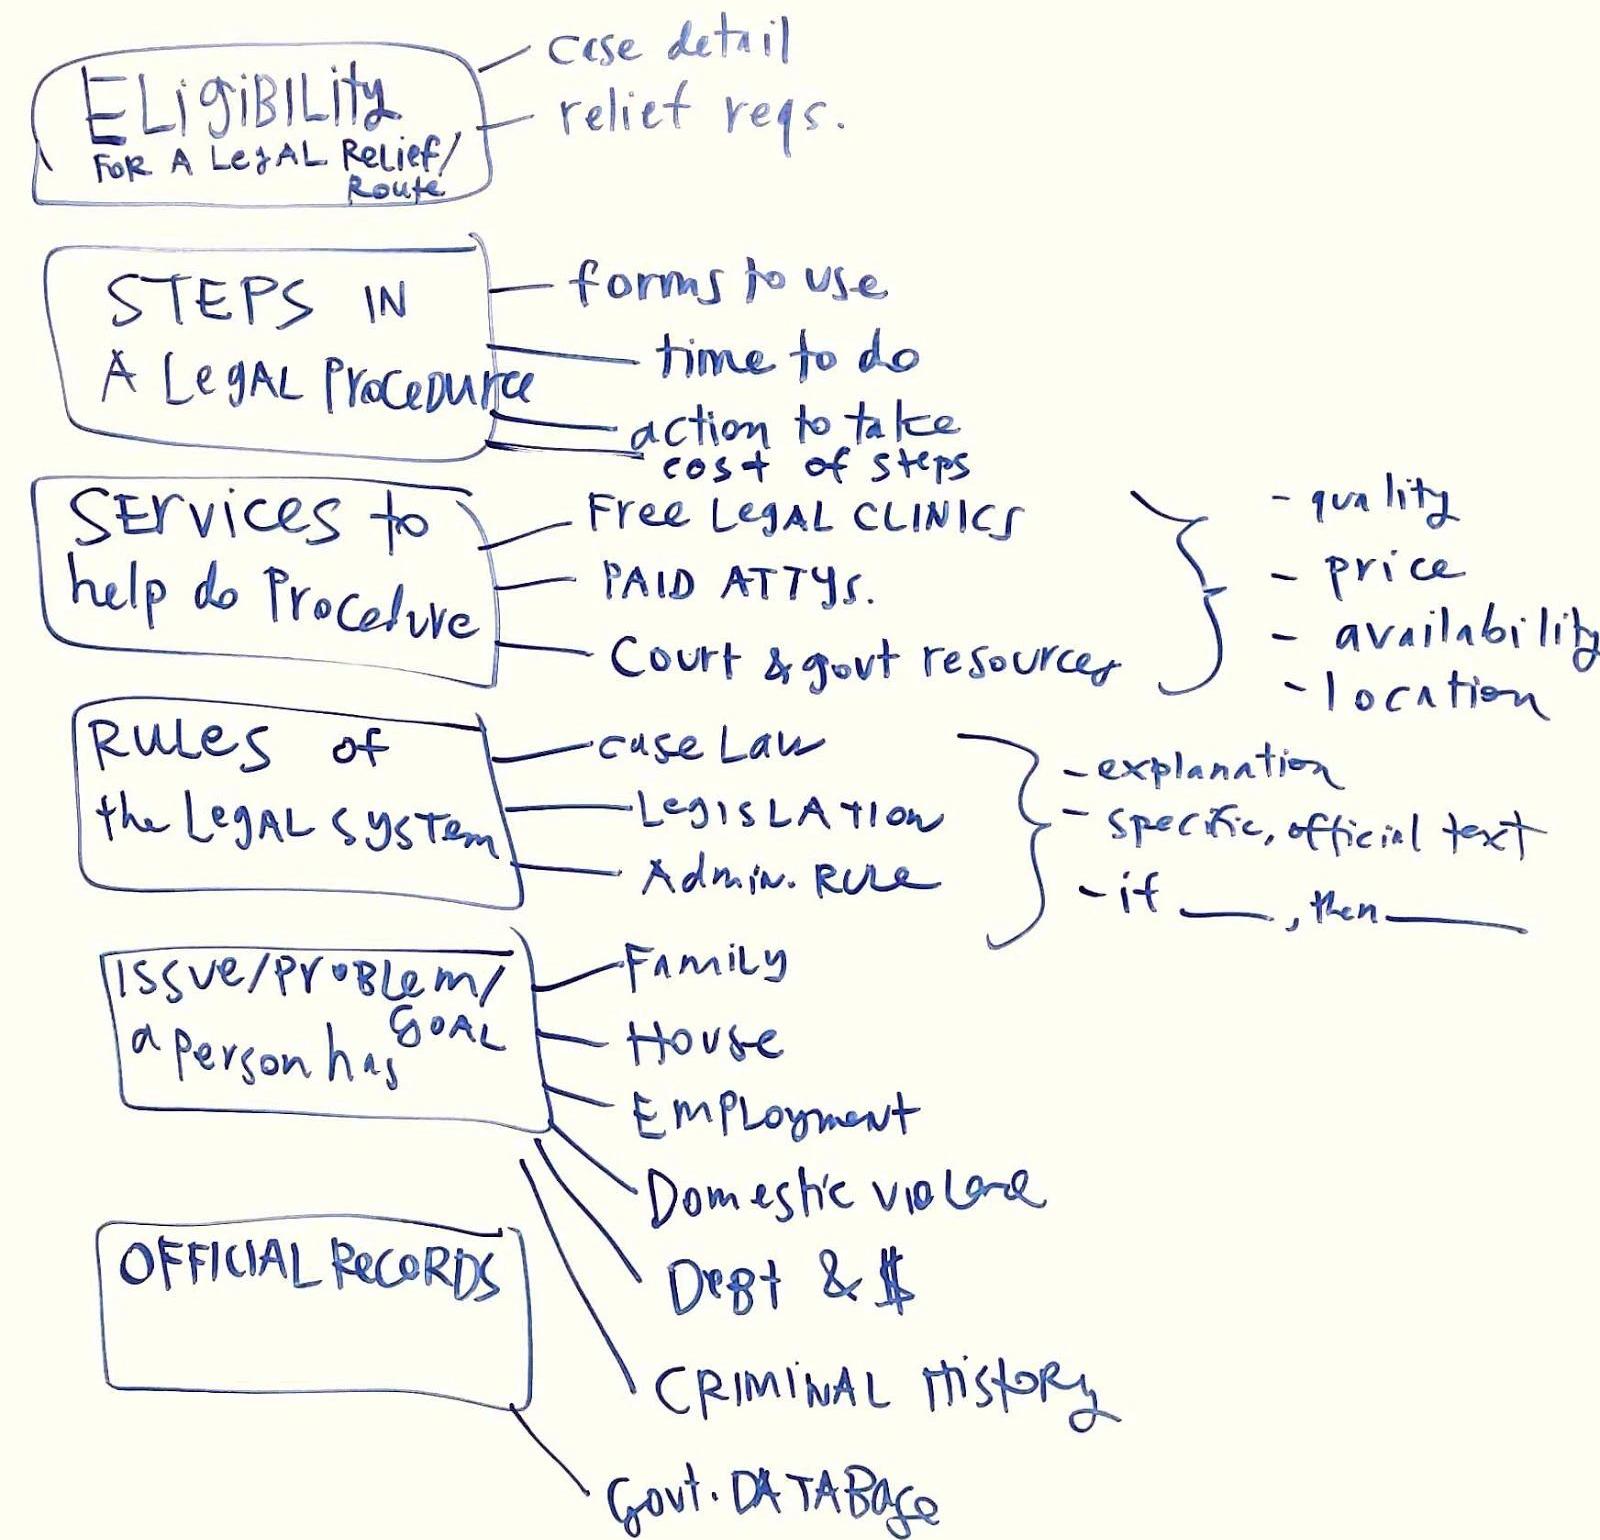 ELIGIBILITY
FOR A LEGAL RELIEF/
ROUTE
case detail
relief reqs.
STEPS IN
A LEGAL PROCEDURE
forms to use
time to do
action to take
cost of steps
SERVICES to
help do Procedure
FREE LEGAL CLINICS
PAID ATTYS.
Court & govt resources
- quality
- price
- availability
- location
RULES of
the LEGAL SYSTEM
case Law
LEGISLATION
Admin. RULE
- explanation
- specific, official text
- if ____, then ____
ISSUE/PROBLEM/
GOAL
a person has
Family
House
EMPLOYMENT
Domestic violence
Debt & $
CRIMINAL HISTORY
OFFICIAL RECORDS
Govt. DATABASE